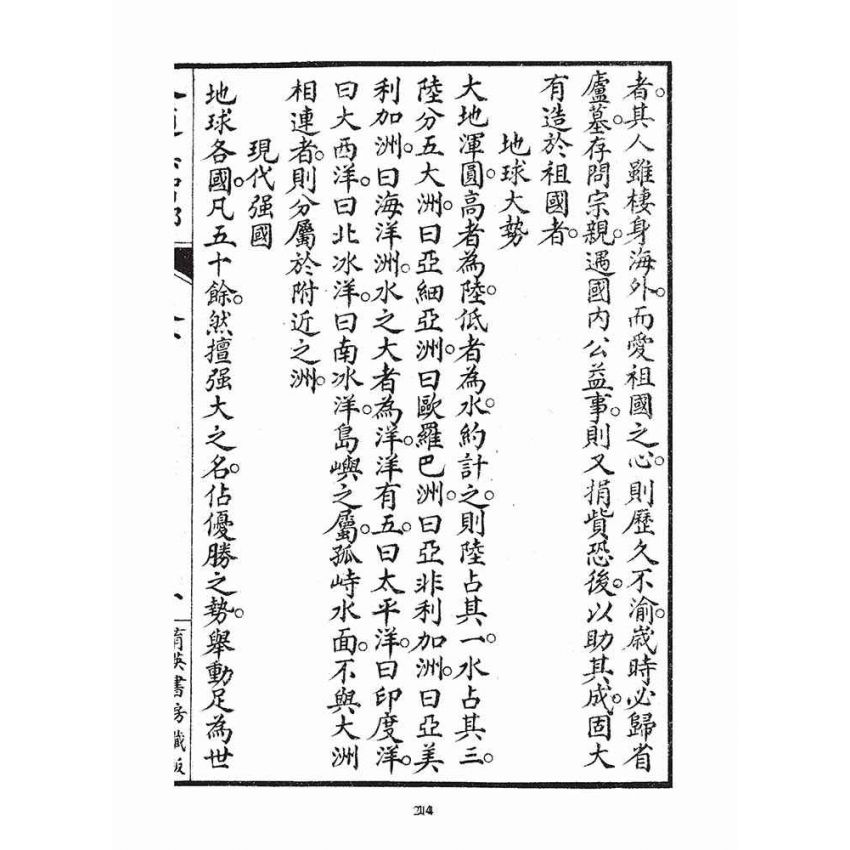 者。其人雖棲身海外。而愛祖國之心。則歷久不渝。歲時必歸省
廬墓。存問宗親。遇國內公益事。則又捐貲恐後。以助其成。固大
有造於祖國者。
地球大勢
大地渾圓。高者為陸。低者為水。約計之。則陸占其一。水占其三。
陸分五大洲。曰亞細亞洲。曰歐羅巴洲。曰亞非利加洲。曰亞美
利加洲。曰海洋洲。水之大者為洋。洋有五。曰太平洋。曰印度洋。
曰大西洋。曰北冰洋。曰南冰洋。島嶼之屬。孤峙水面。不與大洲
相連者。則分屬於附近之洲。
現代强國
地球各國。凡五十餘。然擅强大之名。佔優勝之勢。舉動足為世
育英書房藏版
214